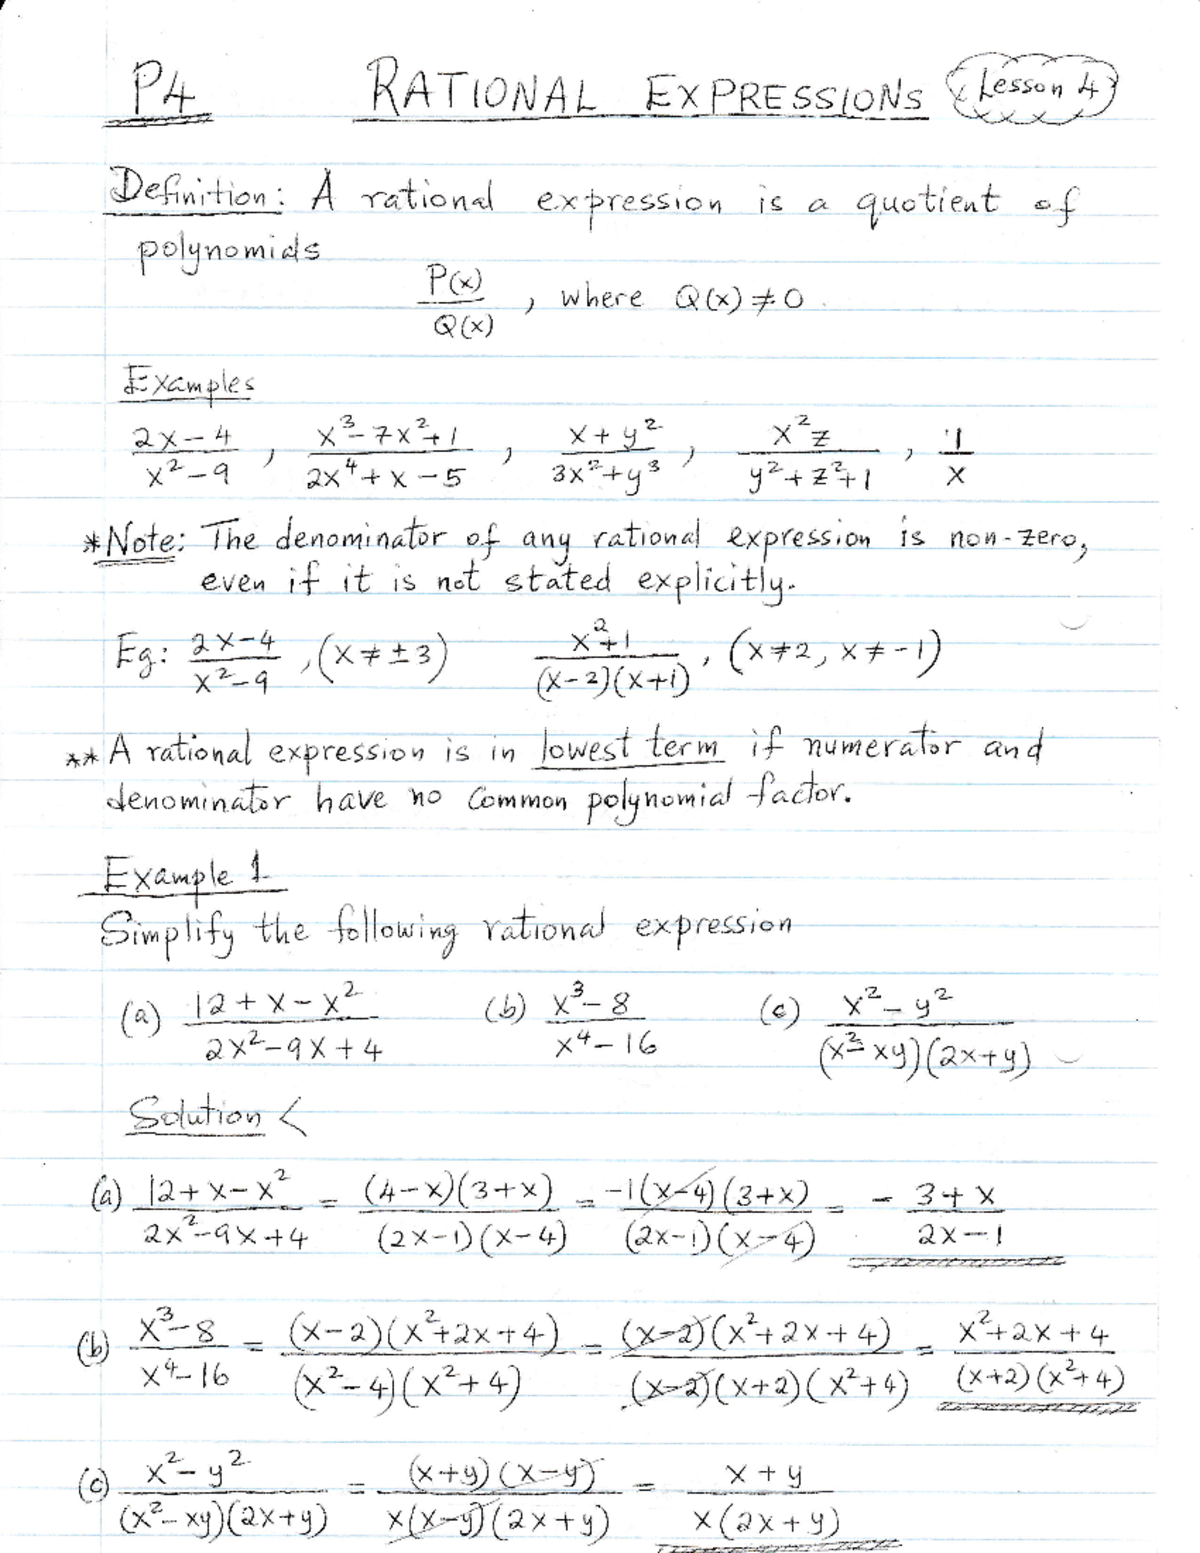 P4 RATIONAL EXPRESSIONS Lesson 4
Definition: A rational expression is a quotient of
polynomials
P(x)/Q(x) , where Q(x) ≠ 0.
Examples
(2x-4)/(x²-9) , (x³-7x²+1)/(2x⁴+x-5) , (x+y²)/(3x²+y³) , (x²z)/(y²+z²+1) , 1/x
*Note: The denominator of any rational expression is non-zero,
even if it is not stated explicitly.
Eg: (2x-4)/(x²-9) , (x ≠ ±3) (x²+1)/((x-2)(x+1)) , (x≠2, x≠-1)
** A rational expression is in lowest term if numerator and
denominator have no common polynomial factor.
Example 1
Simplify the following rational expression
(a) (12+x-x²)/(2x²-9x+4) (b) (x³-8)/(x⁴-16) (c) (x²-y²)/((x²-xy)(2x+y))
Solution <
(a) (12+x-x²)/(2x²-9x+4) = ((4-x)(3+x))/((2x-1)(x-4)) = (-1(x-4)(3+x))/((2x-1)(x-4)) = - (3+x)/(2x-1)
(b) (x³-8)/(x⁴-16) = ((x-2)(x²+2x+4))/((x²-4)(x²+4)) = ((x-2)(x²+2x+4))/((x-2)(x+2)(x²+4)) = (x²+2x+4)/((x+2)(x²+4))
(c) (x²-y²)/((x²-xy)(2x+y)) = ((x+y)(x-y))/(x(x-y)(2x+y)) = (x+y)/(x(2x+y))